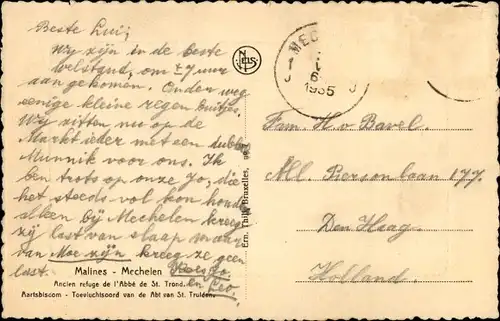 Beste Lui,
Wy zijn in de beste
welstand, om ± 7 uur
aangekomen. Onder weg
eenige kleine regen buitjes.
Wy zitten nu op de
Markt ieder met een dubb.
Munnik voor ons. Ik
ben trots op onze Jo, die
het steeds vol kon houd
alleen bÿ Mechelen kreeg
zij last van slaap maar
van Moe zijn kreeg ze geen
last.
Kees Jo.
en Leo.
Malines - Mechelen
Ancien refuge de l'Abbé de St. Trond.
Aartsbiscom - Toevluchtsoord van de Abt van St. Truiden.
Ern. Thill, Bruxelles.
NELS
MEC
1 6
1935
Fam. H. v Bavel.
All. Piersonlaan 177.
Den Haag
Holland.